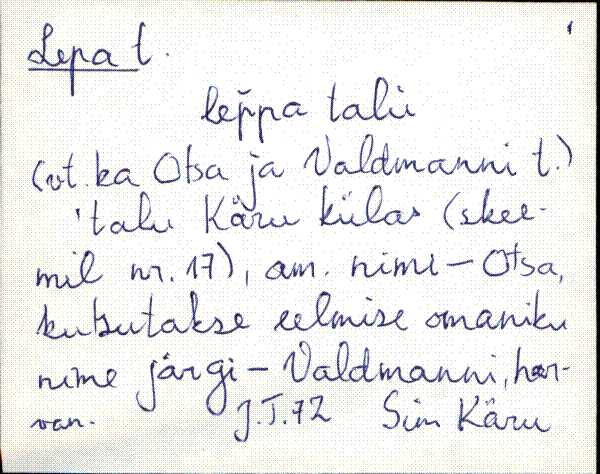 Lepa t.
lep̆pa talu
(vt. ka Otsa ja Valdmanni t.)
'talu Käru külas (skee-
mil nr. 17), am. nimi - Otsa,
kutsutakse eelmise omaniku
nime järgi - Valdmanni, har-
van. J.T.72 Sim Käru